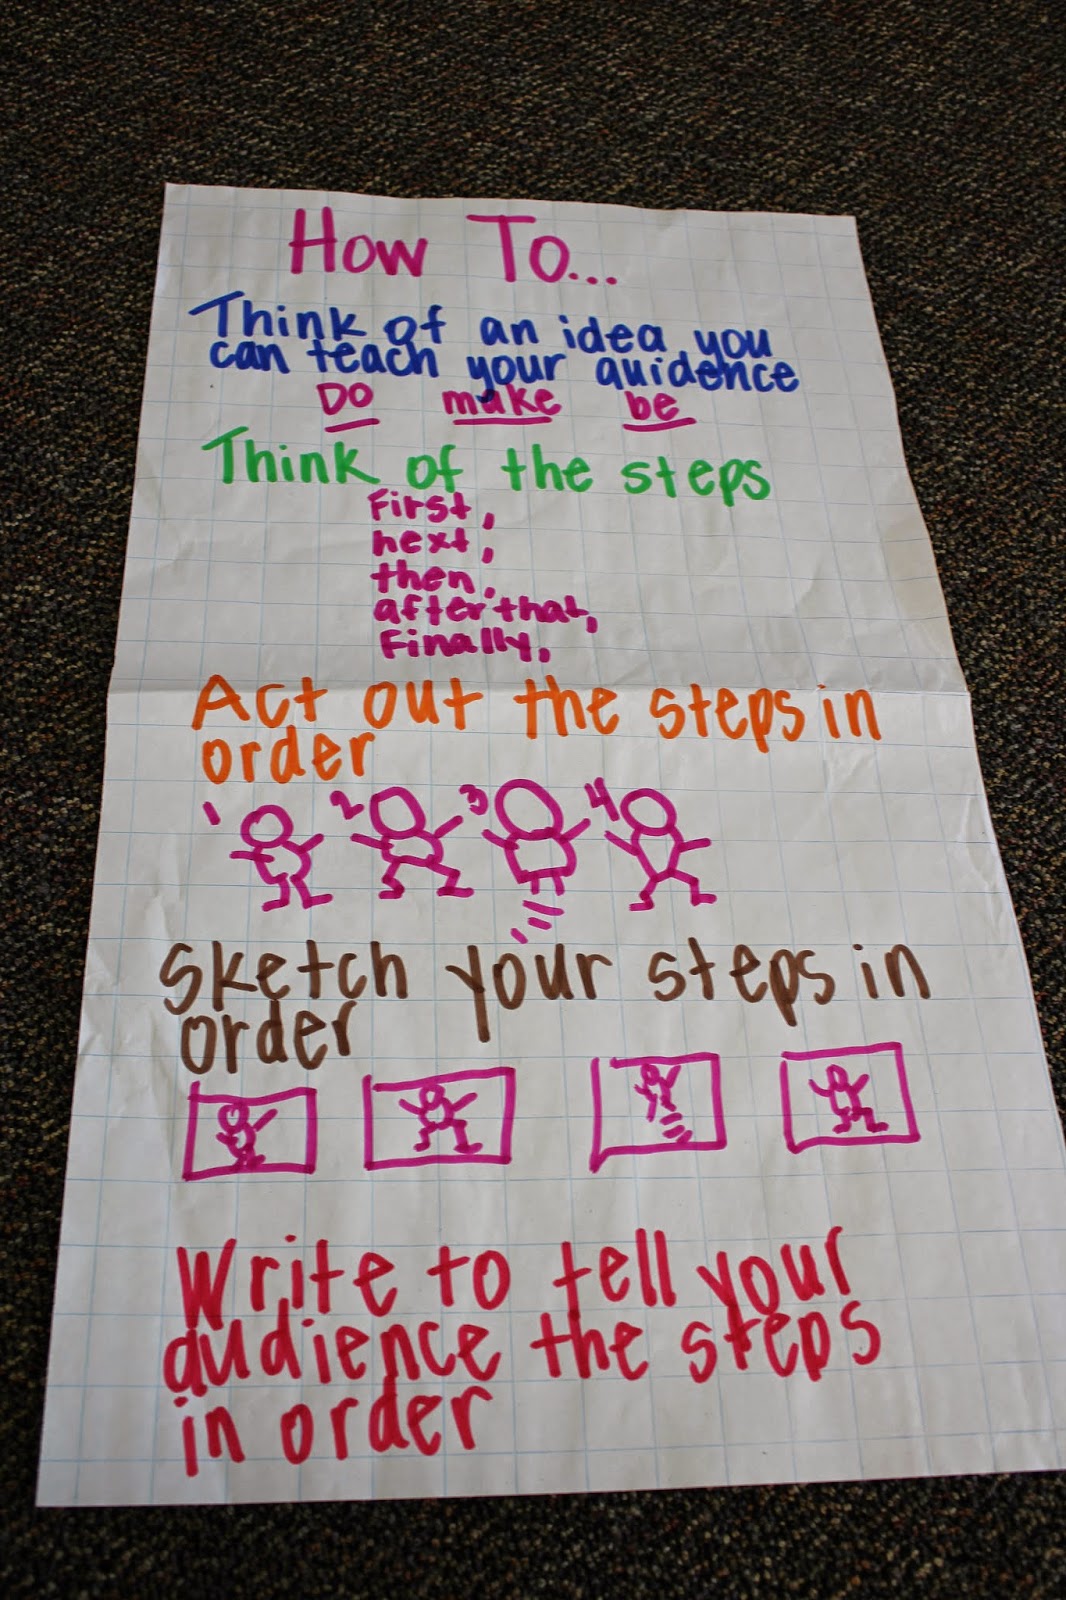 How To...
Think of an idea you
can teach your auidence
Do make be
Think of the steps
First,
next,
then,
after that,
Finally,
Act out the steps in
order
1 2 3 4
Sketch your steps in
order
Write to tell your
audience the steps
in order